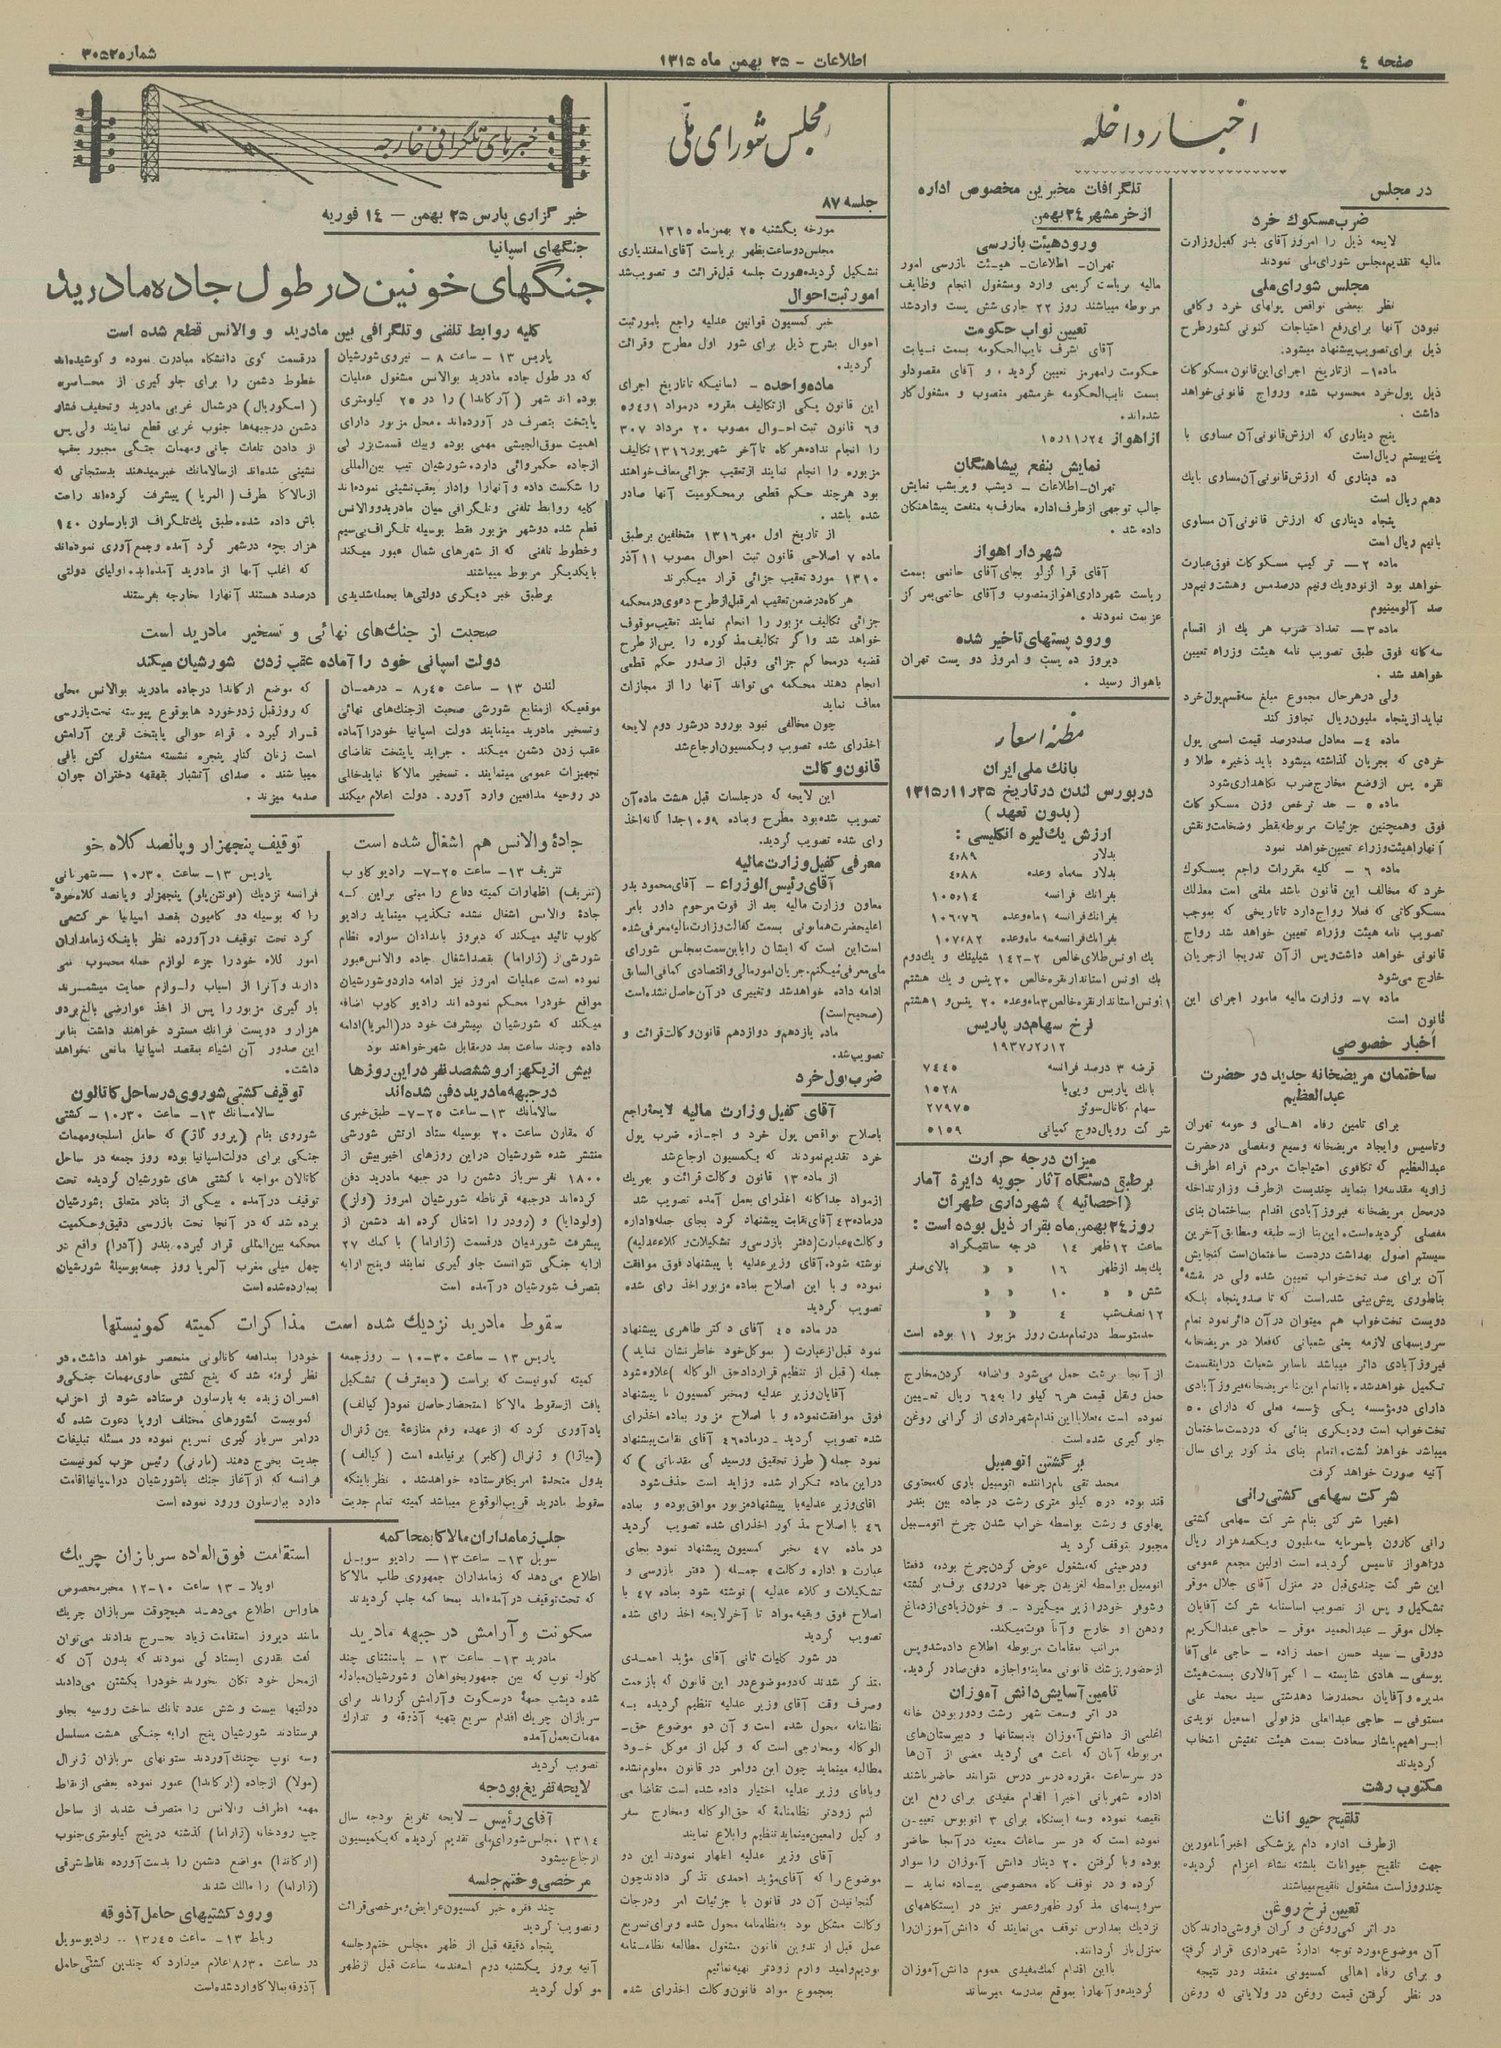 صفحه ٤
اطلاعات - ٢٥ بهمن ماه ١٣١٥
شماره ٣٠٥٢
اخبار داخله
در مجلس
ضرب مسکوک خرد
لایحه ذیل را امروز آقای بدر کفیل وزارت
مالیه تقدیم مجلس شورای ملی نمودند
مجلس شورای ملی
نظر ببعضی نواقص پولهای خرد و کافی
نبودن آنها برای رفع احتیاجات کنونی کشور طرح
ذیل برای تصویب پیشنهاد میشود.
ماده ١- از تاریخ اجرای این قانون مسکوکات
ذیل پول خرد محسوب شده و رواج قانونی خواهد
داشت .
پنج دیناری که ارزش قانونی آن مساوی با
یک بیستم ریال است
ده دیناری که ارزش قانونی آن مساوی با یک
دهم ریال است
پنجاه دیناری که ارزش قانونی آن مساوی
با نیم ریال است
ماده ٢ - ترکیب مسکوکات فوق عبارت
خواهد بود از نود و یک و نیم درصد مس و هشت و نیم در
صد آلومینیوم
ماده ٣ - تعداد ضرب هر یک از اقسام
سه گانه فوق طبق تصویب نامه هیئت وزراء تعیین
خواهد شد .
ولی در هر حال مجموع مبلغ سه قسم پول خرد
نباید از پنجاه ملیون ریال تجاوز کند
ماده ٤- معادل صد درصد قیمت اسمی پول
خردی که بجریان گذاشته میشود باید ذخیره طلا و
نقره پس از وضع مخارج ضرب نگاهداری شود
ماده ٥ - حد ترخص وزن مسکوکات
فوق و همچنین جزئیات مربوطه بقطر و ضخامت و نقش
آنها را هیئت وزراء تعیین خواهد نمود
ماده ٦ - کلیه مقررات راجع بمسکوک
خرد که مخالف این قانون باشد ملغی است معذلک
مسکوکاتی که فعلا رواج دارد تا تاریخی که بموجب
تصویب نامه هیئت وزراء تعیین خواهد شد رواج
قانونی خواهد داشت و پس از آن تدریجا از جریان
خارج می شود
ماده ٧- وزارت مالیه مامور اجرای این
قانون است
اخبار خصوصی
ساختمان مریضخانه جدید در حضرت
عبدالعظیم
برای تامین رفاه اهالی و حومه تهران
و تاسیس و ایجاد مریضخانه وسیع و مفصلی در حضرت
عبدالعظیم که تکافوی احتیاجات مردم قراء اطراف
زاویه مقدسه را بنماید چندیست از طرف وزارتداخله
در محل مریضخانه فیروزآبادی اقدام بساختمان بنای
مفصلی گردیده است. این بنا از  طبقه و مطابق آخرین
سیستم اصول بهداشت در دست ساختمان است گنجایش
آن برای صد تخت خواب تعیین شده ولی در نقشه
بنا طوری پیش بینی شده است که تا صد و پنجاه بلکه
دویست تخت خواب هم میتوان در آن دائر نمود تمام
سرویسهای لازمه یعنی شعباتی که فعلا در مریضخانه
فیروزآبادی دائر میباشد با سایر شعبات در این قسمت
تکمیل خواهد شد. با اتمام این بنا مریضخانه فیروزآبادی
دارای دو مؤسسه یکی مؤسسه فعلی که دارای ٥٠
تخت خواب است و دیگری بنائی که در دست ساختمان
میباشد خواهد گشت. اتمام بنای مذکور برای سال
آتیه صورت خواهد گرفت
شرکت سهامی کشتی رانی
اخیرا شرکتی بنام شرکت سهامی کشتی
رانی کارون با سرمایه سه ملیون و یکصد هزار ریال
در اهواز تاسیس گردیده است اولین مجمع عمومی
این شرکت چندی قبل در منزل آقای جلال موقر
تشکیل و پس از تصویب اساسنامه شرکت آقایان
جلال موقر - عبدالحمید موقر - حاجی عبدالکریم
دورقی - سید حسن احمد زاده - حاجی علی آقا
یوسفی - هادی شایسته - اکبر آقالاری بسمت هیئت
مدیره و آقایان محمدرضا دهدشتی سید محمد علی
مستوفی - حاجی عبدالعلی دزفولی اسمعیل نویدی
ابراهیم باشار سعادت بسمت هیئت تفتیش انتخاب
گردیدند
مکتوب رشت
تلقیح حیوانات
از طرف اداره دام پزشکی اخیراً مامورین
جهت تلقیح حیوانات بلشته نشاء اعزام گردیده
چند روز است مشغول تلقیح میباشند
تعیین نرخ روغن
در اثر کمی روغن و گران فروشی دارندگان
آن موضوع مورد توجه ادارهٔ شهرداری قرار گرفته
و برای رفاه اهالی کمسیونی منعقد و در نتیجه
در نظر گرفتن قیمت روغن در ولایاتی که روغن
تلگرافات مخبرین مخصوص اداره
از خرمشهر ٢٤ بهمن
ورود هیئت بازرسی
تهران - اطلاعات - هیئت بازرسی امور
مالیه بریاست کریمی وارد و مشغول انجام وظایف
مربوطه میباشند روز ٢٢ جاری شش پست وارد شد
تعیین نواب حکومت
آقای اشرف نایب الحکومه بسمت نیابت
حکومت رامهرمز تعیین گردید ، و آقای مقصودلو
بسمت نایب الحکومه خرمشهر منصوب و مشغول کار
شده اند.
از اهواز ١٥،١١،٢٤
نمایش بنفع پیشاهنگان
تهران - اطلاعات - دیشب و پریشب نمایش
جالب توجهی از طرف اداره معارف به منفعت پیشاهنگان
داده شد .
شهردار اهواز
آقای قراگزلو بجای آقای حاتمی بسمت
ریاست شهرداری اهواز منصوب و آقای حاتمی بمرکز
عزیمت نمودند .
ورود پستهای تاخیر شده
دیروز ده پست و امروز دو پست تهران
باهواز رسید .
مظنه اسعار
بانک ملی ایران
در بورس لندن در تاریخ ١٣١٥،١١،٢٥
(بدون تعهد)
ارزش یک لیره انگلیسی :
بدلار ٤،٨٩
بدلار سه ماه وعده ٤،٨٨
بفرانک فرانسه ١٠٥،١٤
بفرانک فرانسه ١ ماه وعده ١٠٦،٧٦
بفرانک فرانسه سه ماه وعده ١٠٧،٨٢
یک اونس طلای خالص ٢-١٤٢ شیلینگ و یک دوم
یک اونس استاندار نقره خالص ٢٠ پنس و یک هشتم
١ اونس استاندار نقره خالص ٣ ماه وعده ٢٠ پنس و ١ هشتم
نرخ سهام در پاریس
١٩٣٧،٢،١٢
قرضه ٣ درصد فرانسه ٧٤٤٥
بانک پاریس و پی با ١٥٢٨
سهام کانال سوئز ٢٧٩٧٥
شرکت رویال دوچ کمپانی ٥١٥٩
میزان درجه حرارت
بر طبق دستگاه آثار جویه دایرهٔ آمار
(احصائیه) شهرداری طهران
روز ٢٤ بهمن ماه بقرار ذیل بوده است :
ساعت ١٢ ظهر ١٤ درجه سانتیگراد
یک بعد از ظهر ١٦ « « بالای صفر
شش « « ١٠ « «
١٢ نصف شب ٤ « «
حد متوسط در تمام مدت روز مزبور ١١ بوده است
از آنجا برشت حمل می شود و اضافه کردن مخارج
حمل و نقل قیمت هر ٦ کیلو را به ٦٤ ریال تعیین
نموده است و فعلا با این اقدام شهرداری از گرانی روغن
جلوگیری شده است
برگشتن اتومبیل
محمد تقی نام راننده اتومبیل باری که محتوی
قند بوده در ٥ کیلومتری رشت در جاده بین بندر
پهلوی و رشت بواسطه خراب شدن چرخ اتومبیل
مجبور بتوقف گردید
و در حینی که مشغول عوض کردن چرخ بوده، دفعتا
اتومبیل بواسطه لغزیدن چرخها در روی برف برگشته
و شوفر خود را زیر میگیرد - و خون زیادی از دماغ
و دهن او خارج و آناً فوت میکند.
مراتب بمقامات مربوطه اطلاع داده شد و پس
از حضور پزشک قانونی معاینه و اجازه دفن صادر گردید.
تامین آسایش دانش آموزان
در اثر وسعت شهر رشت و دور بودن خانه
اغلبی از دانش آموزان بدبستانها و دبیرستان های
مربوطه آنان که باعث می گردید بعضی از آن ها
در سر ساعت مقرره در سر درس نتوانند حاضر باشند
اداره شهربانی اخیرا اقدام مفیدی برای رفع این
نقیصه نموده و سه ایستگاه برای ٣ اتوبوس تعیین
نموده است که در سر ساعات معینه در آنجا حاضر
بوده و با گرفتن ٢٠ دینار دانش آموزان را سوار
کرده و در توقف گاه مخصوصی پیاده نماید -
سرویسهای مذکور ظهر و عصر نیز در ایستگاههای
نزدیک بمدارس توقف می نمایند که دانش آموزان را
بمنزل باز گردانند.
با این اقدام کمک مفیدی بعموم دانش آموزان
گردیده و آنها را بموقع بمدرسه میرساند
مجلس شورای ملی
جلسه ٨٧
مورخه یکشنبه ٢٥ بهمن ماه ١٣١٥
مجلس دو ساعت بظهر بریاست آقای اسفندیاری
تشکیل گردیده صورت جلسه قبل قرائت و تصویب شد
امور ثبت احوال
خبر کمسیون قوانین عدلیه راجع بامور ثبت
احوال بشرح ذیل برای شور اول مطرح و قرائت
گردید.
ماده واحده - کسانیکه تا تاریخ اجرای
این قانون یکی از تکالیف مقرره در مواد ١ و ٤ و ٥
و ٦ قانون ثبت احوال مصوب ٢٠ مرداد ٣٠٧
را انجام نداده هرگاه تا آخر شهریور ١٣١٦ تکالیف
مزبوره را انجام نمایند از تعقیب جزائی معاف خواهند
بود هر چند حکم قطعی بر محکومیت آنها صادر
شده باشد .
از تاریخ اول مهر ١٣١٦ متخلفین بر طبق
ماده ٧ اصلاحی قانون ثبت احوال مصوب ١١ آذر
١٣١٠ مورد تعقیب جزائی قرار میگیرند
هرگاه در ضمن تعقیب امر قبل از طرح دعوی در محکمه
جزائی تکالیف مزبور را انجام نمایند تعقیب موقوف
خواهد شد و اگر تکالیف مذکوره را پس از طرح
قضیه در محاکم جزائی و قبل از صدور حکم قطعی
انجام دهند محکمه می تواند آنها را از مجازات
معاف نماید
چون مخالفی نبود بورود در شور دوم لایحه
اخذ رای شده تصویب و بکمسیون ارجاع شد
قانون وکالت
این لایحه که در جلسات قبل هشت ماده آن
تصویب شده بود مطرح و بماده ٩ و ١٠ جداگانه اخذ
رای شده تصویب گردید.
معرفی کفیل وزارت مالیه
آقای رئیس الوزراء - آقای محمود بدر
معاون وزارت مالیه بعد از فوت مرحوم داور بامر
اعلیحضرت همایونی بسمت کفالت وزارت مالیه معرفی شده
است این است که ایشان را باین سمت به مجلس شورای
ملی معرفی میکنم. جریان امور مالی و اقتصادی کمافی السابق
ادامه داده خواهد شد و تغییری در آن حاصل نشده است
(صحیح است)
ماده یازدهم و دوازدهم قانون وکالت قرائت و
تصویب شد.
ضرب پول خرد
آقای کفیل وزارت مالیه لایحهٔ راجع
باصلاح نواقص پول خرد و اجازه ضرب پول
خرد تقدیم نمودند که بکمسیون ارجاع شد
از ماده ١٣ قانون وکالت قرائت و بهر یک
از مواد جداگانه اخذ رای بعمل آمده تصویب شد
در ماده ٤٣ آقای نقابت پیشنهاد کرد بجای جمله «اداره
وکالت» عبارت (دفتر بازرسی و تشکیلات وکلاء عدلیه)
نوشته شود. آقای وزیر عدلیه با پیشنهاد فوق موافقت
نموده و با این اصلاح بماده مزبور اخذ رای شده
تصویب گردید
در ماده ٤٥ آقای دکتر طاهری پیشنهاد
نمود قبل از عبارت (بموکل خود خاطر نشان نماید)
جمله (قبل از تنظیم قرارداد حق الوکاله) علاوه شود
آقایان وزیر عدلیه و مخبر کمسیون با پیشنهاد
فوق موافقت نموده و با اصلاح مزبور بماده اخذ رای
شده تصویب گردید - در ماده ٤٦ آقای نقابت پیشنهاد
نمود جمله (طرز تحقیق و رسیدگی مقدماتی) که
در این ماده تکرار شده و زاید است حذف شود
آقای وزیر عدلیه با پیشنهاد مزبور موافق بوده و بماده
٤٦ با اصلاح مذکور اخذ رای شده تصویب گردید
در ماده ٤٧ مخبر کمسیون پیشنهاد نمود بجای
عبارت «اداره وکالت» جمله (دفتر بازرسی و
تشکیلات وکلاء عدلیه) نوشته شود بماده ٤٧ با
اصلاح فوق و بقیه مواد تا آخر لایحه اخذ رای شده
تصویب گردید
در شور کلیات ثانی آقای مؤید احمدی
متذکر شدند که دو موضوع در این قانون که با زحمت
و صرف وقت آقای وزیر عدلیه تنظیم گردیده به
نظامنامه محول شده است و آن دو موضوع حق
الوکاله و مخارجی است که وکیل از موکل خود
مطالبه مینماید چون این دو امر در قانون معلوم نشده
و باقای وزیر عدلیه اختیار داده شده است تقاضا می
کنم زودتر نظامنامهٔ که حق الوکاله و مخارج سفر
و کیل را معین مینماید تنظیم و ابلاغ نمایند
آقای وزیر عدلیه اظهار نمودند این دو
موضوع را که آقای مؤید احمدی تذکر دادند چون
گنجانیدن آن در قانون با جزئیات امر و درجات
وکالت مشکل بود بنظامنامه محول شده و برای تسریع
عمل قبل از تدوین قانون مشغول مطالعه نظامنامه
بودیم و امید وارم زودتر تهیه نمائیم
بمجموع مواد قانون وکالت اخذ رای شده
خبرهای تلگرافی خارجه
خبرگزاری پارس ٢٥ بهمن - ١٤ فوریه
جنگهای اسپانیا
جنگهای خونین در طول جاده مادرید
کلیه روابط تلفنی و تلگرافی بین مادرید و والانس قطع شده است
پاریس ١٣ - ساعت ٨ - نیروی شورشیان
که در طول جاده مادرید بوالانس مشغول عملیات
بوده اند شهر (آرگاندا) را در ٢٥ کیلومتری
پایتخت بتصرف در آورده اند. محل مزبور دارای
اهمیت سوق الجیشی مهمی بوده و بیک قسمت بزرگی
از جاده حکمروائی دارد. شورشیان تیپ بین المللی
را شکست داده و آنها را وادار بعقب نشینی نموده اند
کلیه روابط تلفنی و تلگرافی میان مادرید و والانس
قطع شده دو شهر مزبور فقط بوسیله تلگراف بی سیم
و خطوط تلفنی که از شهرهای شمال عبور میکند
با یکدیگر مربوط میباشند
بر طبق خبر دیگری دولتی ها بحمله شدیدی
در قسمت کوی دانشگاه مبادرت نموده و کوشیده اند
خطوط دشمن را برای جلوگیری از محاصره
(اسکوریال) در شمال غربی مادرید و تخفیف فشار
دشمن در جبهه ها جنوب غربی قطع نمایند ولی پس
از دادن تلفات جانی و مهمات جنگی مجبور بعقب
نشینی شده اند از سالامانک خبر میدهند بدستجاتی که
از مالاگا بطرف (المریا) پیشرفت کرده اند راحت
باش داده شده. طبق یک تلگراف از بارسلون ١٤٠
هزار بچه در شهر گرد آمده و جمع آوری نموده اند
که اغلب آنها از مادرید آمده اند. اولیای دولتی
در صدد هستند آنها را بخارجه بفرستند
صحبت از جنگ های نهائی و تسخیر مادرید است
دولت اسپانی خود را آماده عقب زدن شورشیان میکند
لندن ١٣ - ساعت ٨،٤٥ - در همان
موقعیکه از منابع شورشی صحبت از جنگ های نهائی
و تسخیر مادرید مینمایند دولت اسپانیا خود را آماده
عقب زدن دشمن میکند . جراید پایتخت تقاضای
تجهیزات عمومی مینمایند . تسخیر مالاگا نباید خللی
در روحیه مدافعین وارد آورد. دولت اعلام میکند
که موضع ارگاندا در جاده مادرید بوالانس محلی
که روز قبل زد و خورد ها بوقوع پیوسته تحت بازرسی
قرار گیرد . قراء حوالی پایتخت قرین آرامش
است زنان کنار پنجره نشسته مشغول کش بافی
میباشند . صدای آتشبار بقهقهه دختران جوان
صدمه میزند .
جادهٔ والانس هم اشغال شده است
تنریف ١٣- ساعت ٢٥-٧- رادیو کلوب
(تنریف) اظهارات کمیته دفاع را مبنی بر این که
جادهٔ والانس اشغال نشده تکذیب مینماید رادیو
کلوب تائید میکند که دیروز بامدادان سواره نظام
شورشی از (ژاراما) بقصد اشغال جاده والانس عبور
نموده است عملیات امروز نیز ادامه دارد و شورشیان
مواقع خود را محکم نموده اند رادیو کلوب اضافه
میکند که شورشیان پیشرفت خود در (المریا) ادامه
داده و چند ساعت بعد در مقابل شهر خواهند بود
بیش از یکهزار و ششصد نفر در این روزها
در جبهه مادرید دفن شده اند
سالامانک ١٣- ساعت ٢٥-٧- طبق خبری
که مقارن ساعت ٢٠ بوسیله ستاد ارتش شورشی
منتشر شده شورشیان در این روزهای اخیر بیش از
١٨٠٠ نفر سرباز دشمن را در جبهه مادرید دفن
کرده اند در جبهه قرناطه شورشیان امروز (ولز)
(ولودابا) و (رودر) را اشغال کرده اند دشمن از
پیشرفت شورشیان در قسمت (ژاراما) با کمک ٢٧
ارابه جنگی نتوانست جلوگیری نمایند و پنج ارابه
بتصرف شورشیان در آمده است
توقیف پنجهزار و پانصد کلاه خود
پاریس ١٣- ساعت ١٠،٣٠ - شهربانی
فرانسه نزدیک (فونتن بلو) پنجهزار و پانصد کلاه خود
را که بوسیله دو کامیون بقصد اسپانیا حرکت می
کرد تحت توقیف در آورده نظر باینکه زمامداران
امور کلاه خود را جزء لوازم حمله محسوب نمی
دارند و آنرا از اسباب و لوازم حمایت میشمرند
بارگیری مزبور را پس از اخذ عوارضی بالغ بر دو
هزار و دویست فرانک مسترد خواهند داشت بنابر
این صدور آن اشیاء بمقصد اسپانیا مانعی نخواهد
داشت.
توقیف کشتی شوروی در ساحل کاتالون
سالامانک ١٣- ساعت ١٠،٣٠ - کشتی
شوروی بنام (پروو گاز) که حامل اسلحه و مهمات
جنگی برای دولت اسپانیا بوده روز جمعه در ساحل
کاتالان مواجه با کشتی های شورشیان گردیده تحت
توقیف در آمده . بیکی از بنادر متعلق بشورشیان
برده شد که در آنجا تحت بازرسی دقیق و حکمیت
محکمه بین المللی قرار گیرد. بندر (آدرا) واقع در
چهل میلی مغرب آلمریا روز جمعه بوسیلهٔ شورشیان
بمبارده شده است
سقوط مادرید نزدیک شده است مذاکرات کمیته کمونیستها
پاریس ١٣- ساعت ٣٠-١٠ - روز جمعه
کمیته کمونیست که بریاست (دیمترف) تشکیل
یافت از سقوط مالاگا استحضار حاصل نمود (کیالف)
یادآوری کرد که از عهده رفع منازعهٔ بین ژنرال
(میاژا) و ژنرال (کلبر) برنیامده است (کیالف)
بدول متحدهٔ امریکا فرستاده خواهد شد . نظر باینکه
سقوط مادرید قریب الوقوع میباشد کمیته تمام جدیت
خود را بمدافعه کاتالونی منحصر خواهد داشت. در
نظر گرفته شد که پنج کشتی حاوی مهمات جنگی و
افسران زبده به بارسلون فرستاده شود از احزاب
کمونیست کشورهای مختلف اروپا دعوت شده که
در امر سربازگیری تسریع نموده در مسئله تبلیغات
جدیت بخرج دهند (مارتی) رئیس حزب کمونیست
فرانسه که از آغاز جنگ با شورشیان در اسپانیا اقامت
دارد ببارسلون ورود نموده است
جلب زمامداران مالاگا بمحاکمه
سویل ١٣- ساعت ١٣ - رادیو سویل
اطلاع می دهد که زمامداران جمهوری طلب مالاگا
که تحت توقیف در آمده اند بمحاکمه جلب گردیدند
سکونت و آرامش در جبهه مادرید
مادرید ١٣- ساعت ١٣ - باستثنای چند
گلوله توپ که بین جمهوریخواهان و شورشیان مبادله
شده دیشب جبههٔ در سکوت و آرامش گذراند برای
سربازان چریک اقدام سریع بتهیه آذوقه و تدارک
مهمات بعمل آمده
تصویب گردید
لایحه تفریغ بودجه
آقای رئیس - لایحه تفریغ بودجه سال
١٣١٤ مجلس شورای ملی تقدیم گردیده که بکمیسیون
ارجاع میشود
مرخصی و ختم جلسه
چند فقره خبر کمسیون عرایض و مرخصی قرائت
و تصویب گردید
پنجاه دقیقه قبل از ظهر مجلس ختم و جلسه
آتیه بروز یکشنبه دوم اسفند سه ساعت قبل از ظهر
موکول گردید
استقامت فوق العاده سربازان چریک
اویلا - ١٣ ساعت ١٠-١٢ مخبر مخصوص
هاواس اطلاع می دهد هیچوقت سربازان چریک
مانند دیروز استقامت زیاد بخرج ندادند می توان
گفت بقدری ایستادگی نمودند که بدون آن که
از محل خود تکان بخورند خود را بکشتن می دادند
دولتیها بیست و شش عدد تانک ساخت روسیه بجلو
فرستادند شورشیان پنج ارابه جنگی هشت مسلسل
و سه توپ بچنگ آوردند ستونهای سربازان ژنرال
(مولا) از جاده (ارگاندا) عبور نموده بعضی از نقاط
مهمه اطراف والانس را متصرف شدند از ساحل
چپ رودخانه (ژاراما) گذشته در پنج کیلومتری جنوب
(ارگاندا) مواضع دشمن را بدست آورده نقاط شرقی
(ژاراما) را مالک شدند
ورود کشتیهای حامل آذوقه
رباط ١٣- ساعت ١٣،٤٥ .. رادیو سویل
در ساعت ٨،٣٠ اعلام میدارد که چندین کشتی حامل
آذوقه بمالاگا وارد شده است